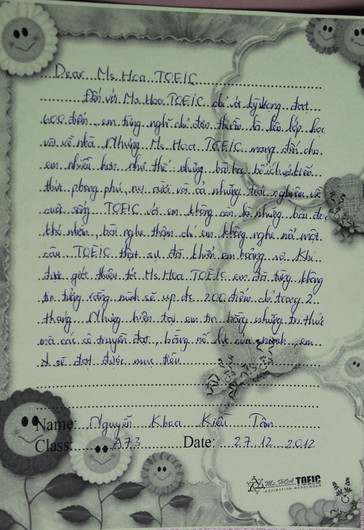 Dear Ms Hoa TOEIC
Đối với Ms Hoa TOEIC chỉ với kỳ vọng đạt
600 điểm, em từng nghĩ chỉ đơn thuần là lên lớp học
và về nhà. Nhưng Ms Hoa TOEIC mang đến cho
em nhiều hơn như thế, những bài học bổ ích, kiến
thức phong phú, nụ cười và cả những trải nghiệm về
cuộc sống. TOEIC với em không còn là những bài đọc
khó nhằn, bài nghe thậm chí em không nghe nổi một
câu. TOEIC thật sự đã khiến em hứng thú. Khi
được giới thiệu tới Ms Hoa TOEIC em đã từng không
tin tưởng rằng mình sẽ up đc 200 điểm chỉ trong 2
tháng. Nhưng hiện tại, em tin bằng những tri thức
mà các cô truyền đạt, bằng nỗ lực của mình, em
sẽ đạt được mục tiêu
Name: Nguyễn Khoa Kiều Tâm
Class: A73 Date: 27.12.2012
Ms HOA TOEIC